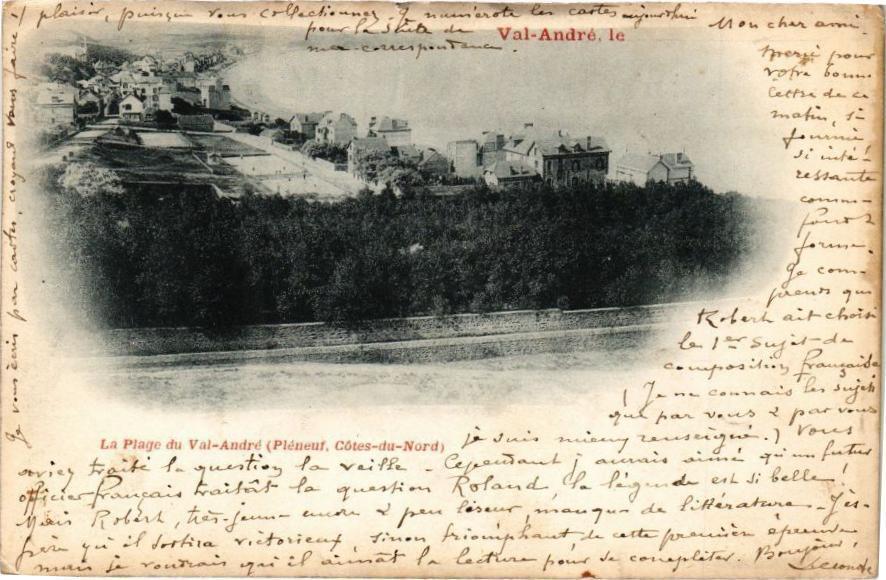 Val-André, le
Mon cher ami.
Merci pour
votre bonne
lettre de ce
matin, si
fournie
si inté-
ressante
comme
fond &
forme.
Je com-
prends que
Robert ait choisi
le 1er sujet de
composition française
(Je ne connais les sujets
que par vous & par vous
La Plage du Val-André (Pléneuf, Côtes-du-Nord)
je suis mieux renseigné.) Vous
aviez traité la question la veille - Cependant j'aurais aimé qu'un futur
officier français traitât la question Roland, la légende est si belle!
Mais Robert, très jeune encore & peu liseur, manque de littérature - J'es-
père qu'il sortira victorieux, sinon triomphant de cette première épreuve
mais je voudrais qu'il aimât la lecture pour se compléter. Bonjour!
Je vous écris par cartes, croyant vous faire
plaisir, puisque vous collectionnez. Je numérote les cartes aujourd'hui
pour la suite de
ma correspondance.